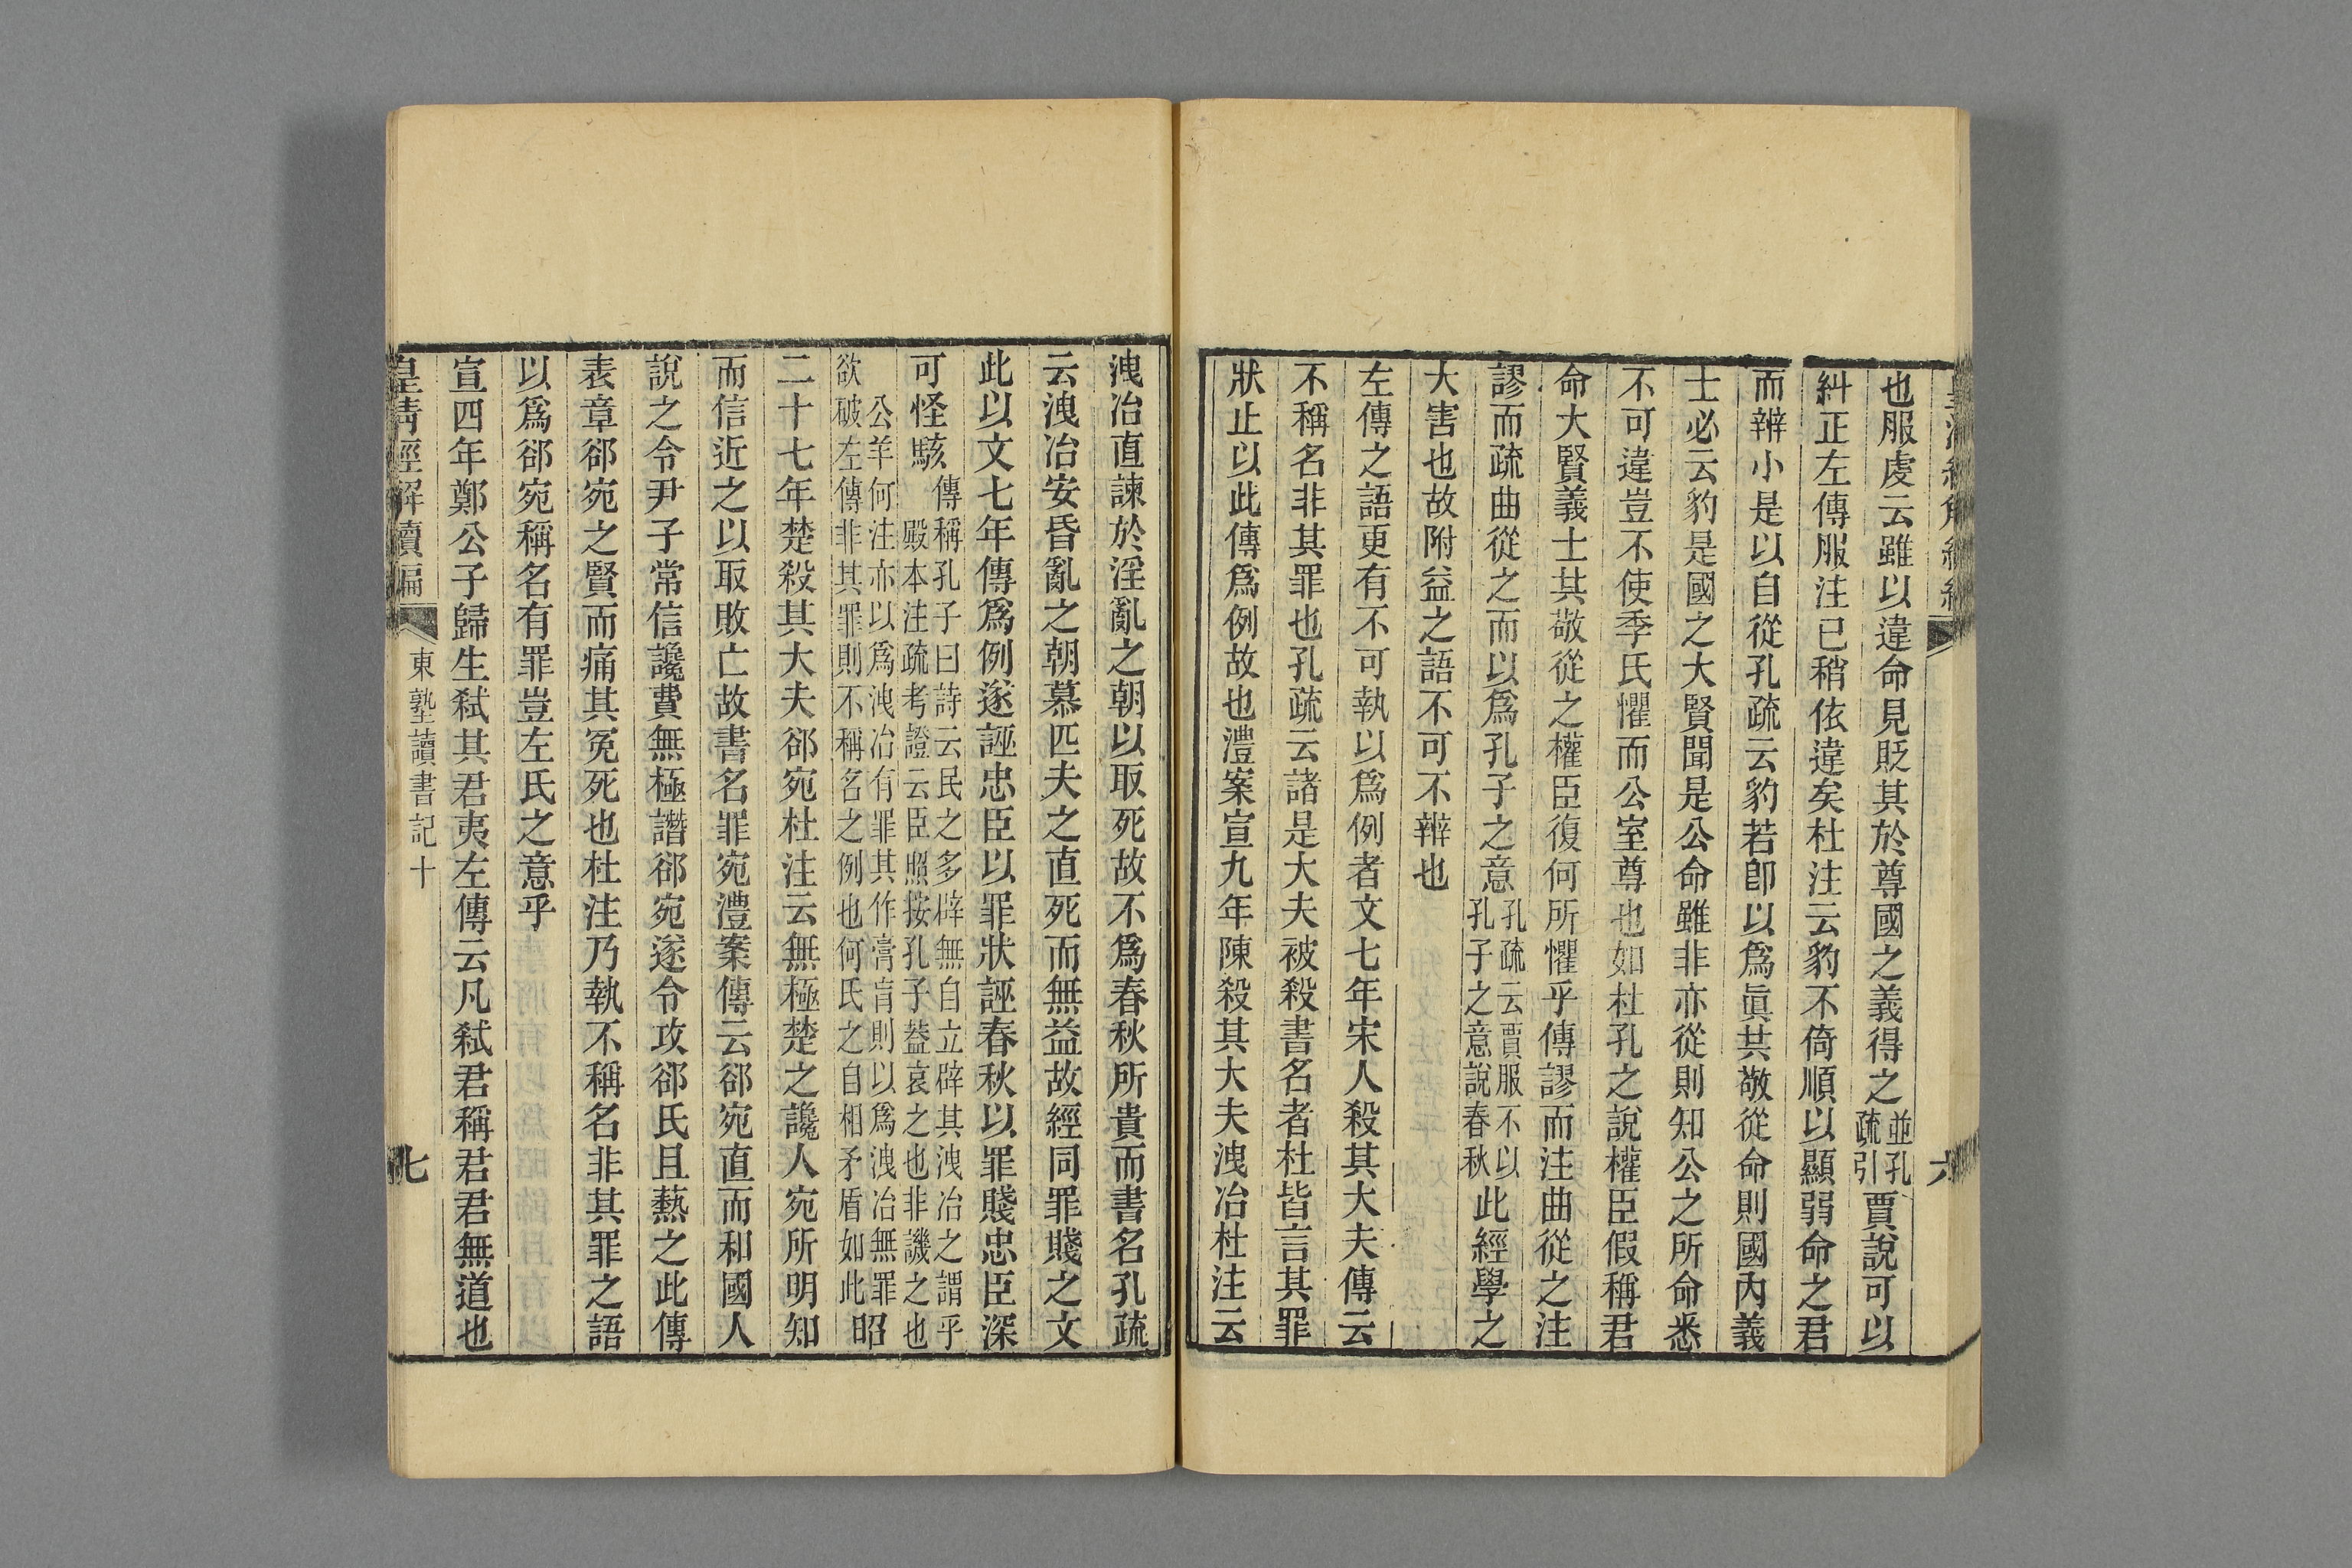 也服虔云雖以違命見貶其於尊國之義得之並孔疏引賈說可以
糾正左傳服注已稍依違矣杜注云豹不倚順以顯弱命之君
而辨小是以自從孔疏云豹若卽以爲眞其敬從命則國內義
士必云豹是國之大賢聞是公命雖非亦從則知公之所命悉
不可違豈不使季氏懼而公室尊也如杜孔之說權臣假稱君
命大賢義士其敬從之權臣復何所懼乎傳謬而注曲從之注
謬而疏曲從之而以爲孔子之意孔疏云賈服不以孔子之意說春秋此經學之
大害也故附益之語不可不辨也
左傳之語更有不可執以爲例者文七年宋人殺其大夫傳云
不稱名非其罪也孔疏云諸是大夫被殺書名者杜皆言其罪
狀止以此傳爲例故也澧案宣九年陳殺其大夫洩冶杜注云
洩冶直諫於淫亂之朝以取死故不爲春秋所貴而書名孔疏
云洩冶安昏亂之朝慕匹夫之直死而無益故經同罪賤之文
此以文七年傳爲例遂誣忠臣以罪狀誣春秋以罪賤忠臣深
可怪駭傳稱孔子曰詩云民之多辟無自立辟其洩冶之謂乎殿本注疏考證云臣照按孔子葢哀之也非譏之也
公羊何注亦以爲洩冶有罪其作膏肓則以爲洩冶無罪欲破左傳非其罪則不稱名之例也何氏之自相矛盾如此昭
二十七年楚殺其大夫郤宛杜注云無極楚之讒人宛所明知
而信近之以取敗亡故書名罪宛澧案傳云郤宛直而和國人
說之令尹子常信讒費無極譖郤宛遂令攻郤氏且爇之此傳
表章郤宛之賢而痛其冤死也杜注乃執不稱名非其罪之語
以爲郤宛稱名有罪豈左氏之意乎
宣四年鄭公子歸生弑其君夷左傳云凡弑君稱君君無道也
皇清經解續編
東塾讀書記十
七